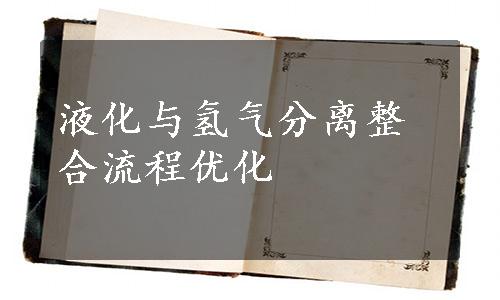 液化与氢气分离整
合流程优化